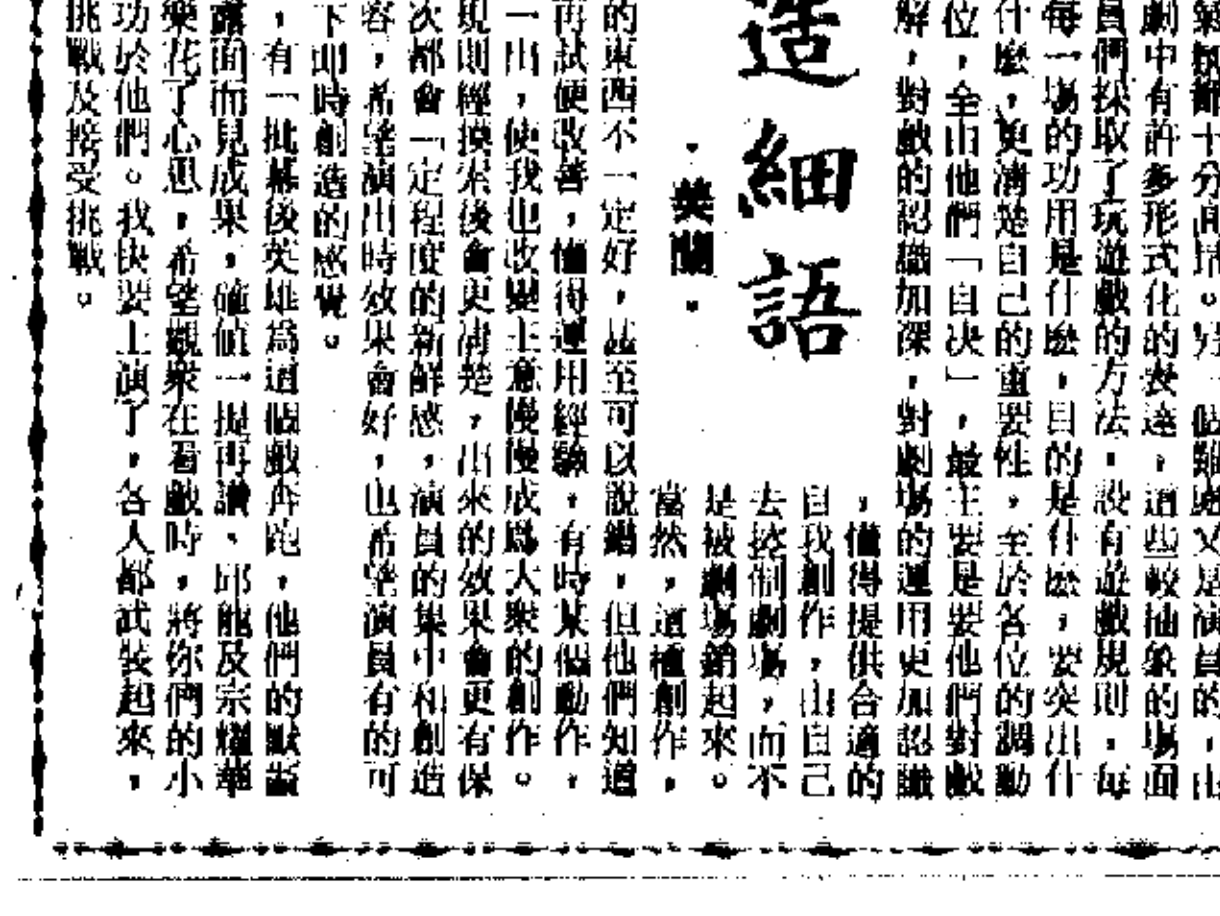 十分
劇中有許多形式化的表達，這些較抽象的場面
員們採取了玩遊戲的方法，設有遊戲規則，每
每一場的功用是什麼，目的是什麼，要突出什
什麼，更清楚自己的重要性，至於各位的調動
位，全由他們「自決」，最主要是要他們對戲
解，對戲的認識加深，對劇場的運用更加認識
，懂得提供合適的
自我創作，由自己
去控制劇場，而不
是被劇場銷起來。
當然，這種創作，
造細語
·英蘭·
的東西不一定好，甚至可以說錯，但他們知道
再試便改善，懂得運用經驗，有時某個動作，
一出，使我也改變主意慢慢成爲大衆的創作。
現則經摸索後會更清楚，出來的效果會更有保
次都會一定程度的新鮮感，演員的集中和創造
容，希望演出時效果會好，也希望演員有的可
下即時創造的感覺。
，有一批幕後英雄爲這個戲奔跑，他們的默
露面而見成果，確值一提再讚、邱龍及宗耀華
樂花了心思，希望觀衆在看戲時，將你們的小
功於他們。我快要上演了，各人都武裝起來，
挑戰及接受挑戰。